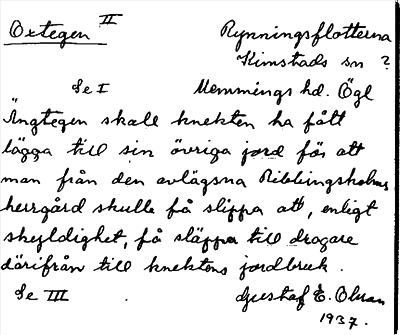 Oxtegen II
Rynningsflotterna
Kimstads sn ?
Se I Memmings hd. Ögl
Ängtegen skall knekten ha fått
lägga till sin övriga jord för att
man från den avlägsna Ribbingsholms
herrgård skulle få slippa att, enligt
skyldighet, få släppa till dragare
därifrån till knektens jordbruk.
Se III Gustaf E. Olsson
1937.